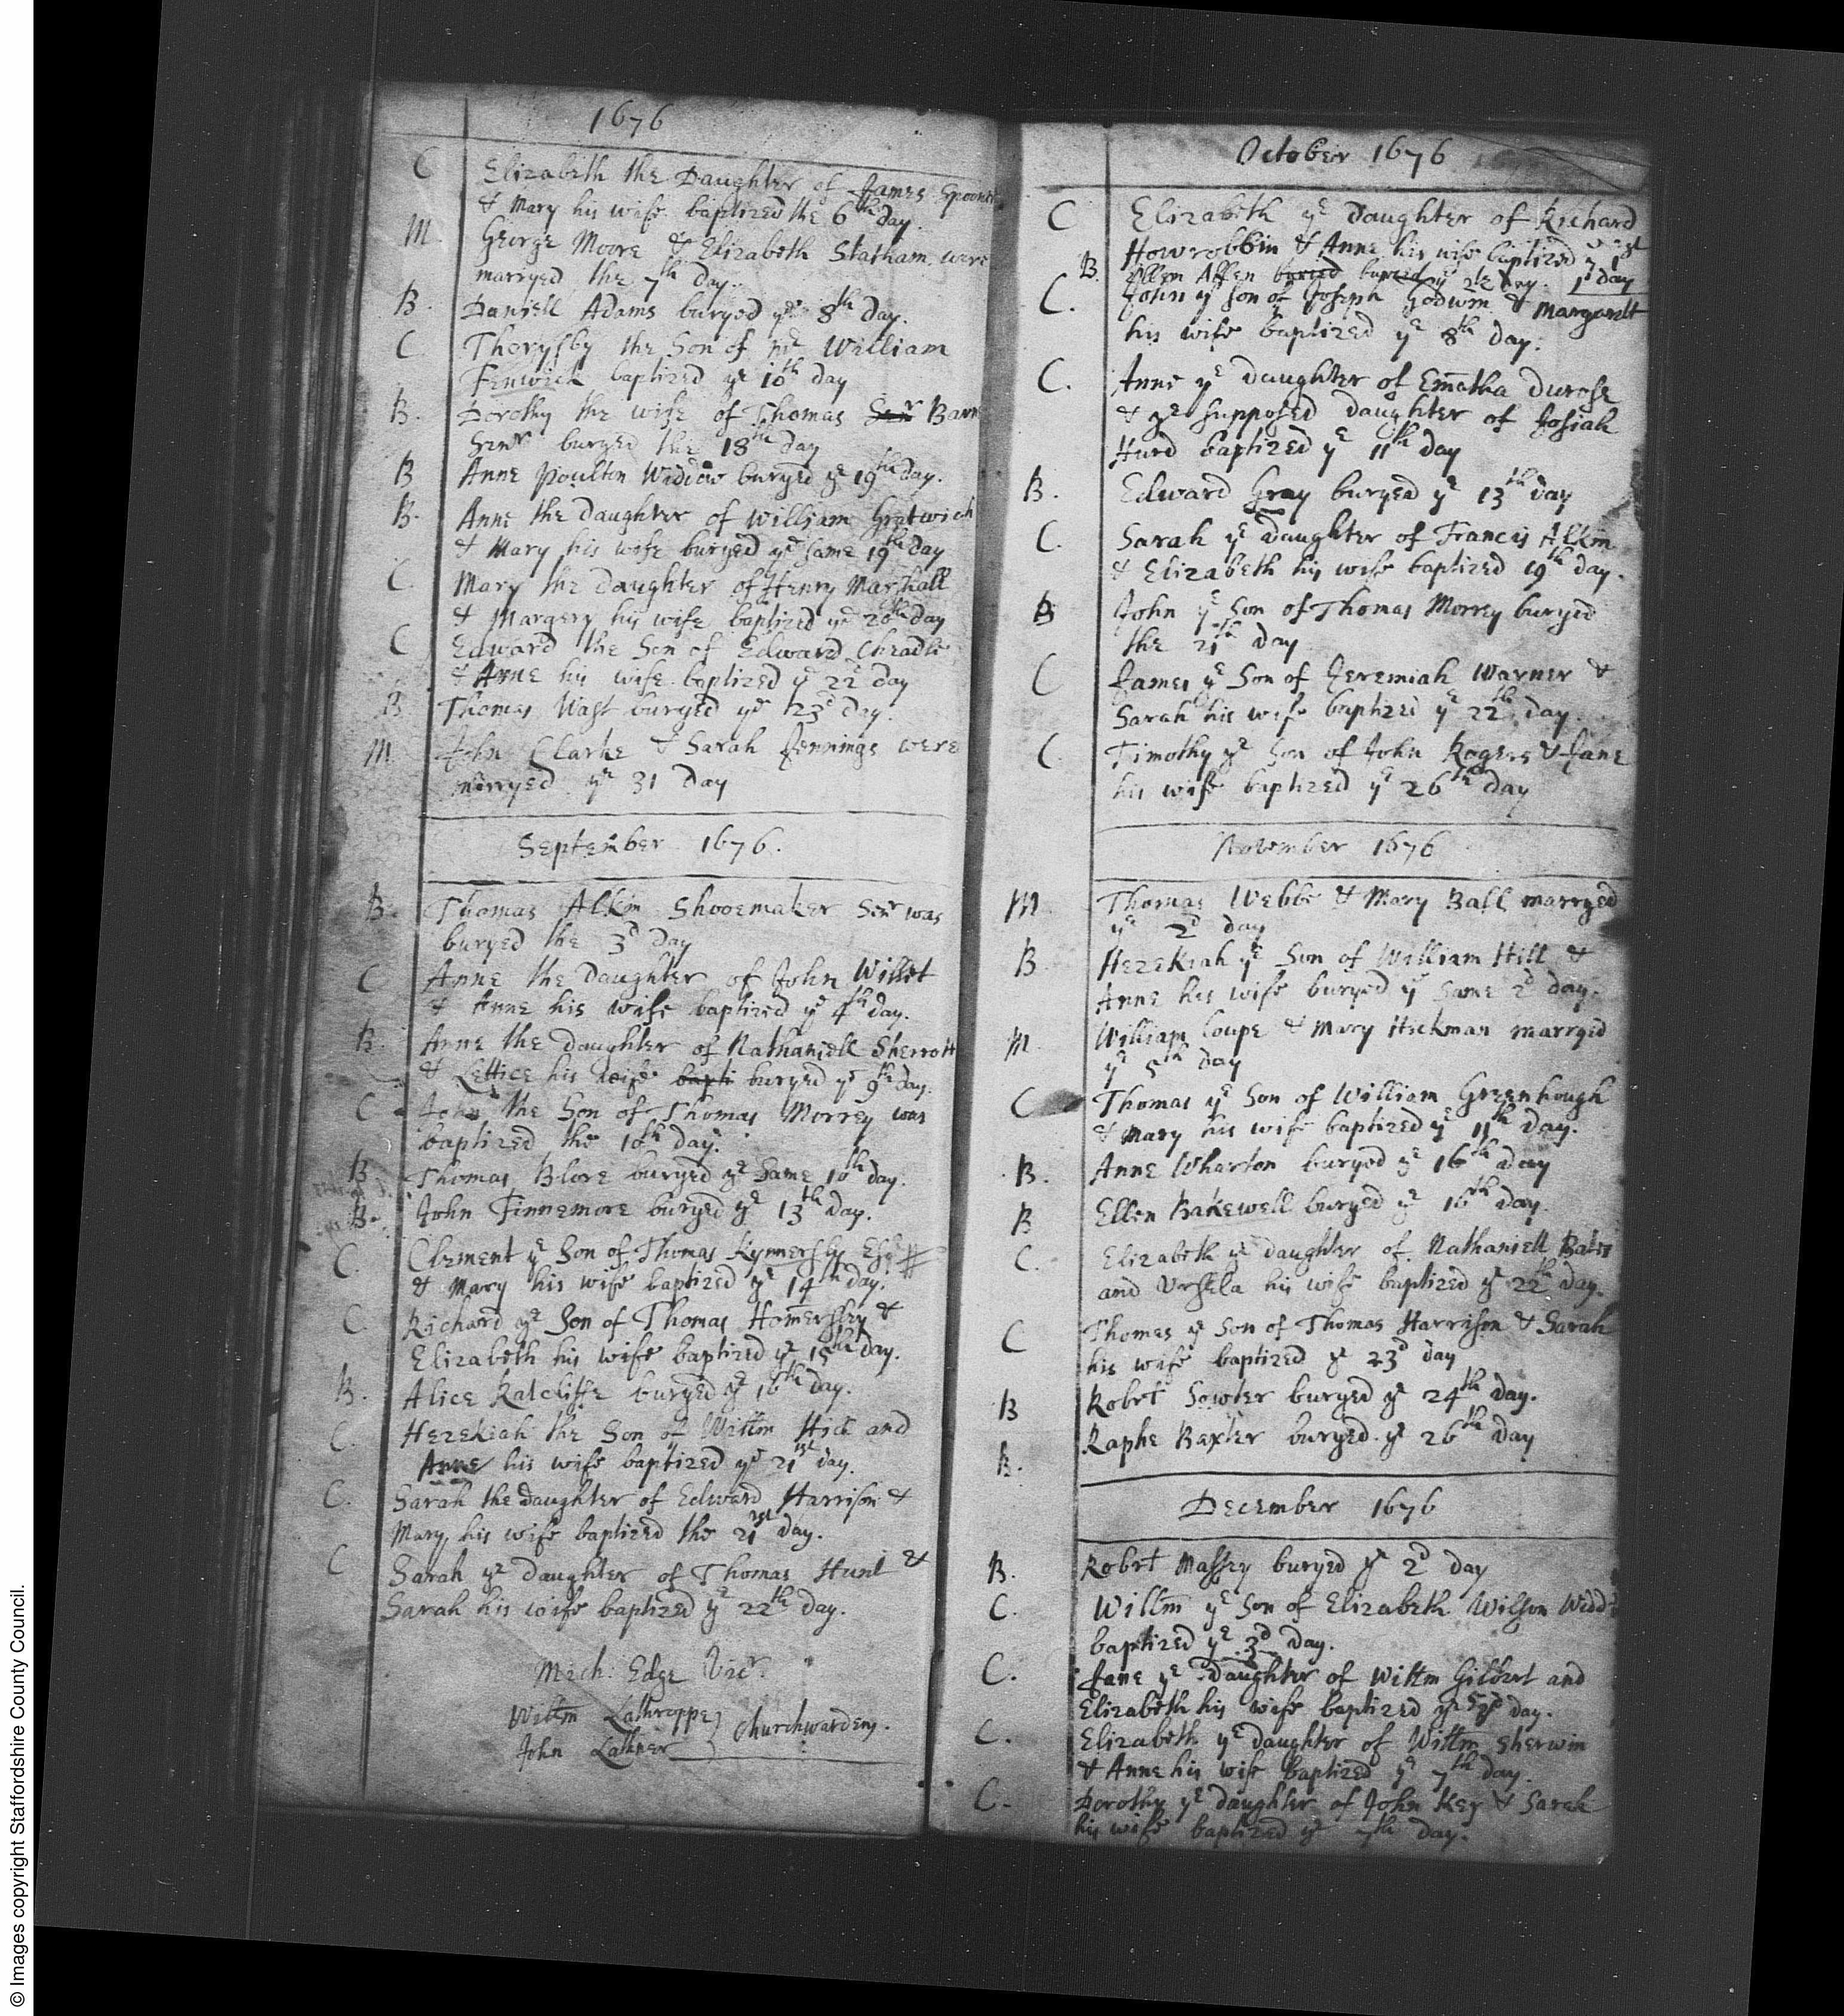 1676
C Elizabeth the Daughter of James Spooner
& Mary his wife baptized the 6th day.
M. George Moore & Elizabeth Statham were
marryed the 7th day.
B. Daniell Adams buryed ye 8th day.
C Thorysby the Son of Mr William
Fenwick baptized ye 10th day
B. Dorothy the wife of Thomas Senr Barn
Senr buryed the 18th day
B Anne Poulton Widdow buryed ye 19th day.
B. Anne the Daughter of William Gretwich
& Mary his wife buryed ye same 19th day
C. Mary the Daughter of Henry Marshall
& Margery his wife baptized ye 20th day
C Edward the Son of Edward Cheadle
& Anne his wife baptized ye 22d day
B Thomas Wast buryed ye 23d day.
M. John Clarke & Sarah Jennings were
marryed ye 31 day
September 1676.
B. Thomas Alkin Shooemaker Senr was
buryed the 3d day
C Anne the Daughter of John Willet
& Anne his wife baptized ye 4th day.
B. Anne the Daughter of Nathaniell Sherrott
& Lettice his wife bapti buryed ye 9th day.
C John the Son of Thomas Morrey was
baptized the 10th day.
B Thomas Blore buryed ye same 10th day.
B. John Finnemore buryed ye 13th day.
C. Clement ye Son of Thomas Kynnersly Esqr
& Mary his wife baptized ye 14th day.
C. Richard ye Son of Thomas Homersley &
Elizabeth his wife baptized ye 15th day.
B. Alice Ratcliffe buryed ye 16th day.
C. Hezekiah the Son of Willm Hill and
Anne his wife baptized ye 21st day.
C. Sarah the daughter of Edward Harrison &
Mary his wife baptized the 21st day.
C Sarah ye daughter of Thomas Hunt &
Sarah his wife baptized ye 22th day.
Mich: Edge Vicr.
Willm Lathroppe } Churchwardens.
John
October 1676
C Elizabeth ye Daughter of Richard
Howrobbin & Anne his wife baptized ye 1st
B. Ellen Allen buried buryed ye 2th day. 1st day
C. John ye Son of Joseph Godwin & Margarett
his wife baptized ye 8th day.
C. Anne ye daughter of Em̄otha Durose
& ye supposed daughter of Josiah
Hurd baptized ye 11th day
B. Edward Gray buryed ye 13th day
C. Sarah ye daughter of Francis Alkin
& Elizabeth his wife baptized 19th day.
B John ye Son of Thomas Morrey buryed
the 21th day
C James ye Son of Jeremiah Warner &
Sarah his wife baptized ye 22th day.
C. Timothy ye Son of John Rogers & Jane
his wife baptized ye 26th day
November 1676
M Thomas Webbe & Mary Ball marryed
ye 2d day
B Hezekiah ye Son of William Hill &
Anne his wife buryed ye same 2d day.
M William Coupe & Mary Hickman marryed
ye 5th day
C Thomas ye Son of William Greenhough
& Mary his wife baptized ye 11th day.
B. Anne Wharton buryed ye 16th day
B Ellen Bakewell buryed ye 16th day.
C. Elizabeth ye daughter of Nathaniell Bates
and Ursela his wife baptized ye 22th day.
C Thomas ye Son of Thomas Harrison & Sarah
his wife baptized ye 23d day
B Robrt Sowter buryed ye 24th day.
B. Raphe Baxter buryed ye 26th day
December 1676
B. Robrt Massey buryed ye 2d day
C. Willm ye Son of Elizabeth Wilson Widd
baptized ye 3d day.
C. Jane ye Daughter of Willm Gilbert and
Elizabeth his wife baptized ye day.
C. Elizabeth ye daughter of Willm Sherwin
& Anne his wife baptized ye 7th day.
C. Dorothy ye daughter of John Key & Sarah
his wife baptized ye 7th day.
© Images copyright Staffordshire County Council.